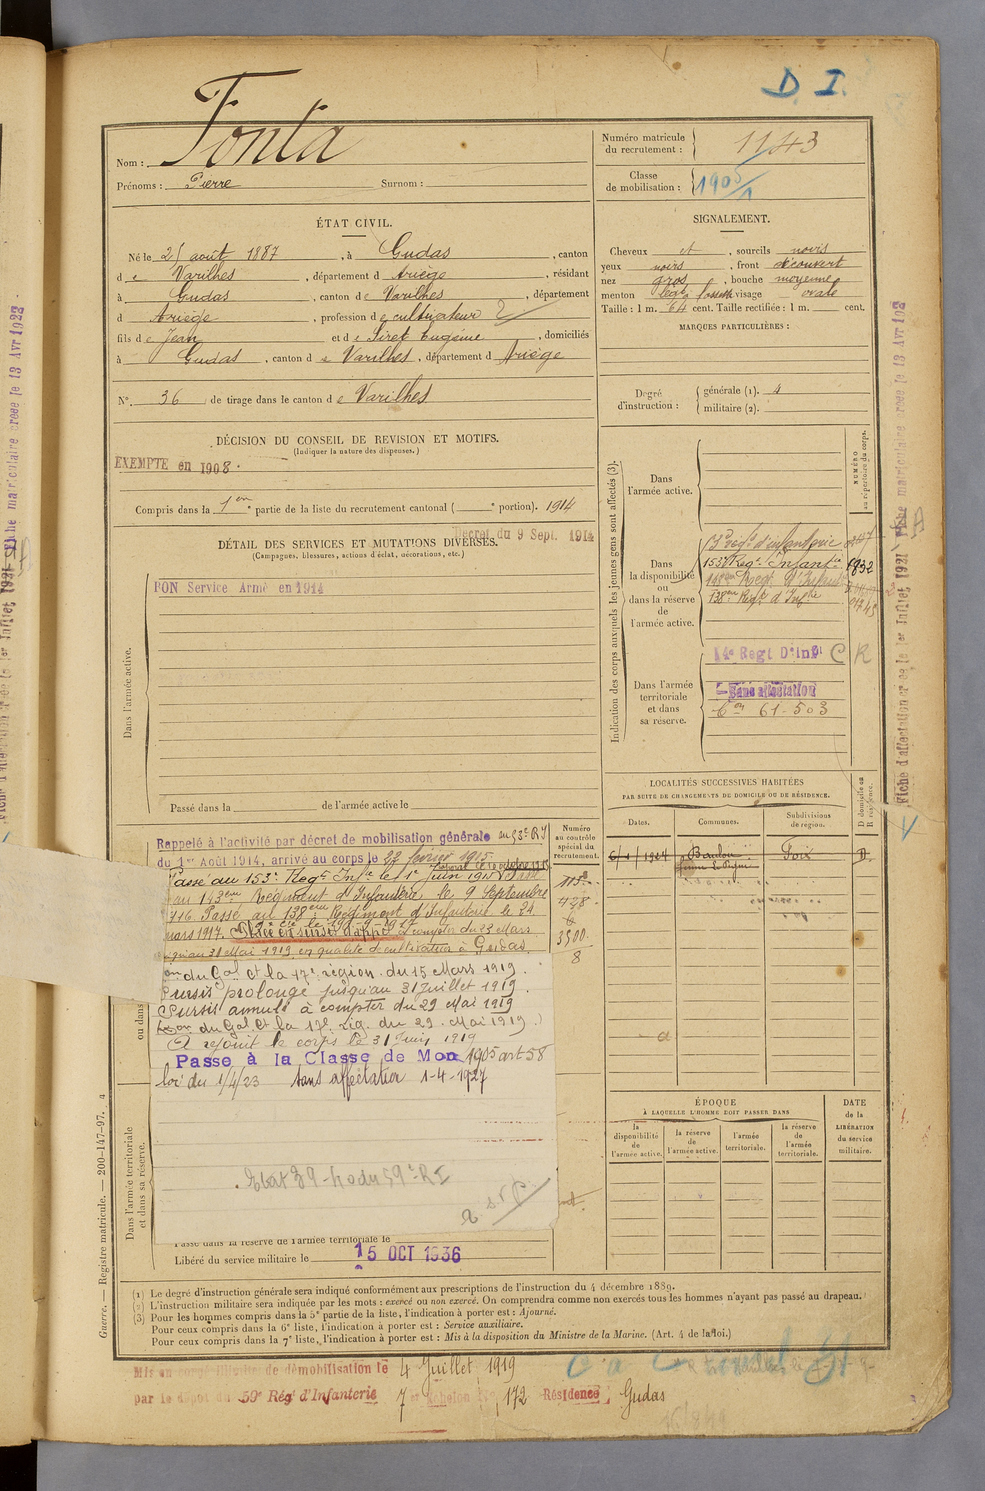 D. I.
Nom : Fonta
Prénoms : Pierre Surnom :
Numéro matricule du recrutement : 1143
Classe de mobilisation : 1905/1
ÉTAT CIVIL.
Né le 21 août 1887, à Gudas, canton
de Varilhes, département d Ariège, résidant
à Gudas, canton de Varilhes, département
d Ariège, profession de cultivateur
fils de Jean et de Siret Eugénie, domiciliés
à Gudas, canton de Varilhes, département d Ariège
N° 36 de tirage dans le canton de Varilhes
SIGNALEMENT.
Cheveux et, sourcils noirs
yeux noirs, front découvert
nez gros, bouche moyenne
menton visage ovale
Taille : 1 m. 64 cent. Taille rectifiée : 1 m. cent.
MARQUES PARTICULIÈRES :
Degré d'instruction : générale (1). 4
militaire (2).
DÉCISION DU CONSEIL DE REVISION ET MOTIFS.
(Indiquer la nature des dispenses.)
EXEMPTÉ en 1908.
Compris dans la 1ère partie de la liste du recrutement cantonal ( e portion). 1914
Décret du 9 Sept. 1914
DÉTAIL DES SERVICES ET MUTATIONS DIVERSES.
(Campagnes, blessures, actions d'éclat, décorations, etc.)
BON Service Armé en 1914
Dans l'armée active.
Passé dans la de l'armée active le
Indication des corps auxquels les jeunes gens sont affectés (3).
NUMÉRO au répertoire du corps.
Dans l'armée active.
Dans la disponibilité ou dans la réserve de l'armée active.
53 régt d'infanterie
153e Régt Infantie 1832
143ème Régt d'Infant
138ème Régt d'Infrie
Dans l'armée territoriale et dans sa réserve.
14e Regt D'inf C R
Sans affectation
61-503
LOCALITÉS SUCCESSIVES HABITÉES
PAR SUITE DE CHANGEMENTS DE DOMICILE OU DE RÉSIDENCE.
Dates. Communes. Subdivisions de région. D domicile ou R résidence.
Foix D.
Numéro au contrôle spécial du recrutement.
428
3500
8
Rappelé à l'activité par décret de mobilisation générale au 53e RI
du 1er Août 1914, arrivé au corps le 22 février 1915.
Passé au 153e Régt Infie le 1er juin 1915
au 143ème Régiment d'Infanterie le 9 Septembre
1916 Passé au 138ème Régiment d'Infanterie le 24
mars 1917. Placé en sursis d'appel à compter du 23 Mars
jusqu'au 31 Mai 1919 en qualité de cultivateur à Gudas
on du Gal Ct la 17e région du 15 Mars 1919.
Sursis prolongé jusqu'au 31 Juillet 1919.
Sursis annulé à compter du 29 Mai 1919
on du Gal Ct la 17e rég. du 29 Mai 1919.)
A rejoint le corps le 31 Juin 1919
Passé à la Classe de Mon 1905 art 58
loi du 1/4/23 sans affectation 1-4-1927
Etat 39-40 du 59e RI
ou dans
Dans l'armée territoriale et dans sa réserve.
Passé dans la réserve de l'armée territoriale le
Libéré du service militaire le 15 OCT 1936
ÉPOQUE
À LAQUELLE L'HOMME DOIT PASSER DANS
la disponibilité de l'armée active. la réserve de l'armée active. l'armée territoriale. la réserve de l'armée territoriale.
DATE de la LIBÉRATION du service militaire.
(1) Le degré d'instruction générale sera indiqué conformément aux prescriptions de l'instruction du 4 décembre 1889.
(2) L'instruction militaire sera indiquée par les mots : exercé ou non exercé. On comprendra comme non exercés tous les hommes n'ayant pas passé au drapeau.
(3) Pour les hommes compris dans la 5e partie de la liste, l'indication à porter est : Ajourné.
Pour ceux compris dans la 6e liste, l'indication à porter est : Service auxiliaire.
Pour ceux compris dans la 7e liste, l'indication à porter est : Mis à la disposition du Ministre de la Marine. (Art. 4 de la loi.)
Mis en congé illimité de démobilisation le 4 Juillet 1919
par le dépôt du 59e Rég d'Infanterie 7e échelon N° 172 Résidence Gudas
Guerre. — Registre matricule. — 200-147-97.
Fiche d'affectation créée le 1er Juillet 1921 Fiche matriculaire créée le 13 Avr 1923